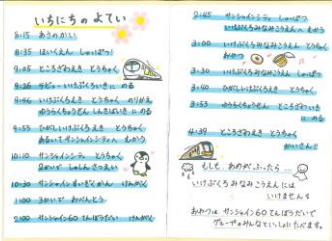 いちにちのよてい
8:15 あさのかい
8:35 ほいくえん しゅっぱつ!
9:05 ところざわえき とうちゃく
いけぶくろいき に のる
9:46 いけぶくろえき とうちゃく のりかえ
ゆうらくちょうせん しんきばいき に のる
9:55 ひがしいけぶくろえき とうちゃく
あるいて サンシャインシティ へ むかう
10:10 サンシャインシティ とうちゃく
10:30 サンシャイン すいぞくかん けんがく
1:00 おべんとう
2:00 サンシャイン60 てんぼうだい けんがく
2:45 サンシャインシティ しゅっぱつ
いけぶくろみなみこうえん へ むかう
3:00 いけぶくろみなみこうえん とうちゃく
おやつ
3:30 いけぶくろみなみこうえん しゅっぱつ
3:40 ひがしいけぶくろえき とうちゃく
3:53 ゆうらくちょうせん ところざわいき
に のる
4:39 ところざわえき とうちゃく
かいさん
もしも あめがふったら…
いけぶくろみなみこうえんには
いけません
おやつは サンシャイン60 てんぼうだいで
グループのみんなといっしょにたべます。